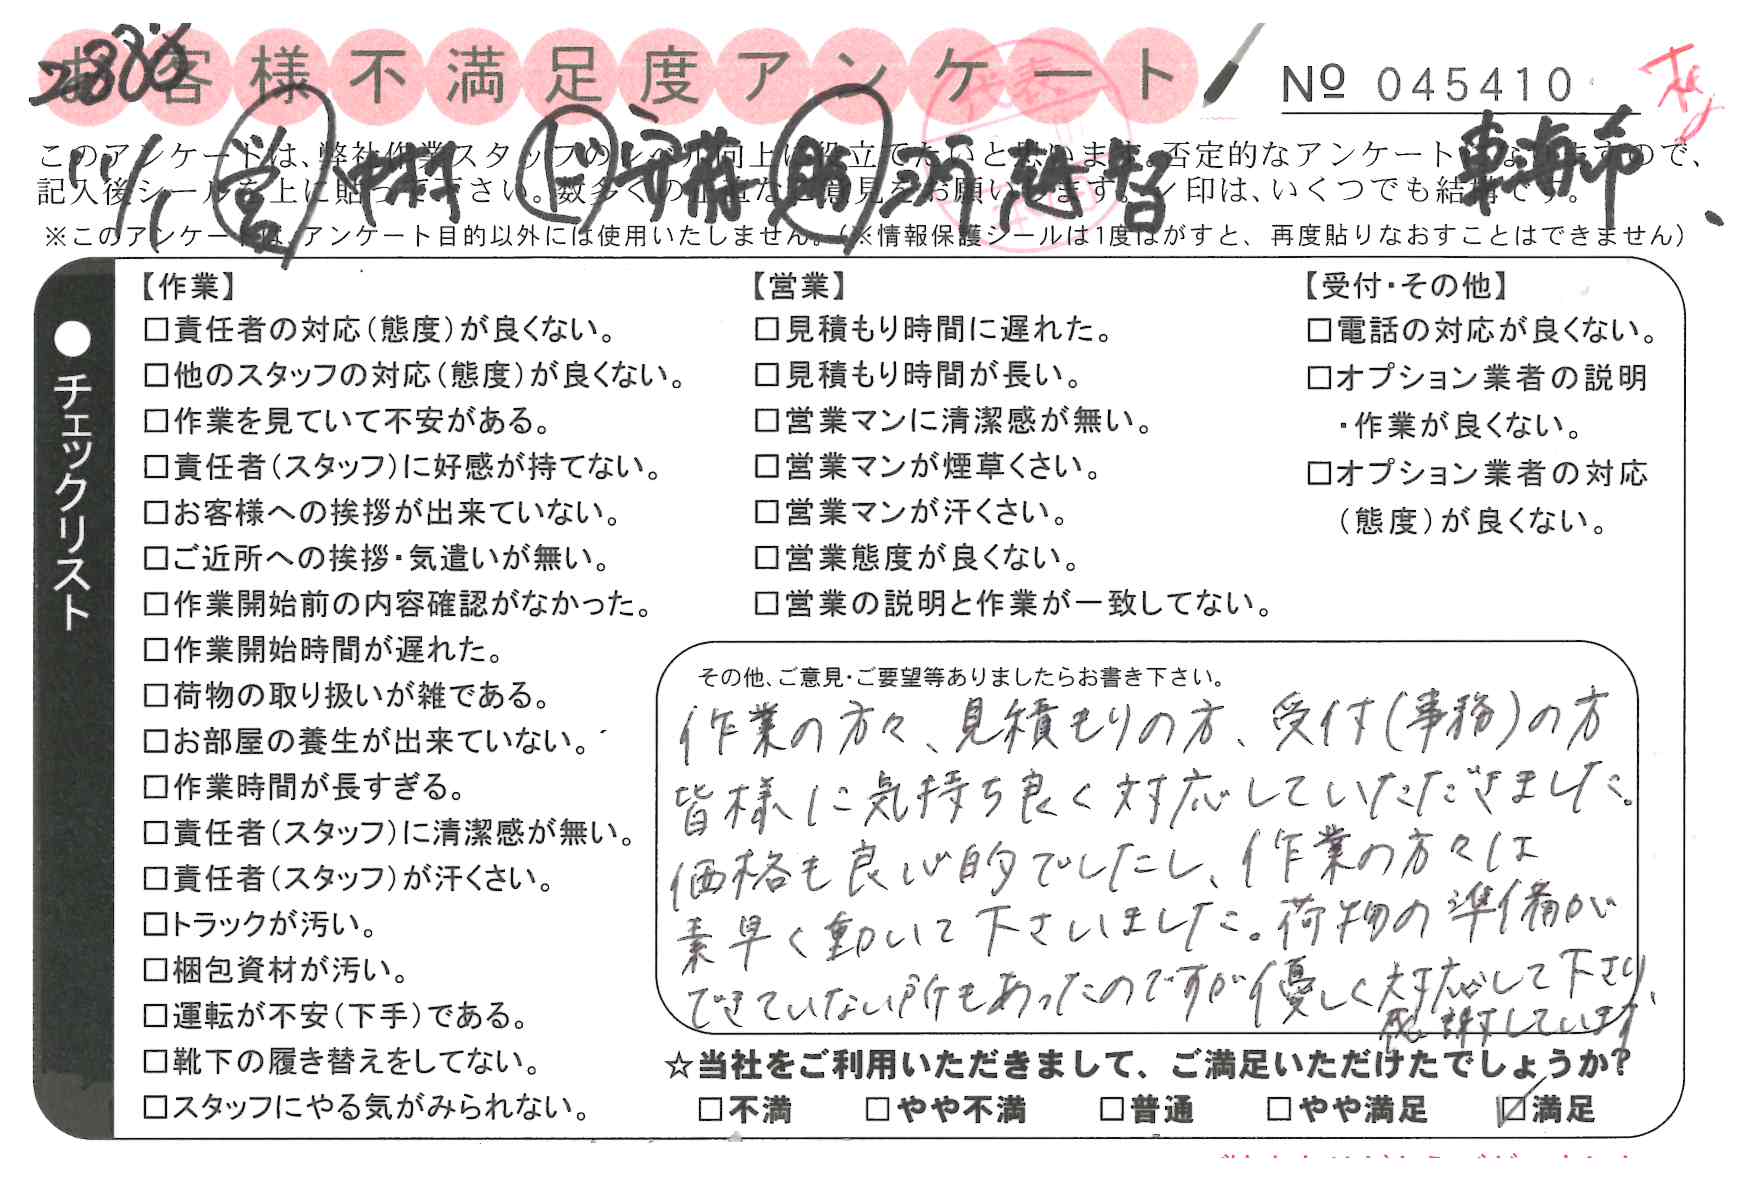 お客様不満足度アンケート
№ 045410
このアンケートは、弊社作業スタッフのレベル向上に役立てたいと思います。否定的なアンケートになりますので、
記入後シールを上に貼って下さい。数多くの正直なご意見をお願いします。レ印は、いくつでも結構です。
※このアンケートは、アンケート目的以外には使用いたしません。(※情報保護シールは1度はがすと、再度貼りなおすことはできません)
2886
11/1 営 中林 ビ 斎 助 東海市
●チェックリスト
【作業】
□責任者の対応(態度)が良くない。
□他のスタッフの対応(態度)が良くない。
□作業を見ていて不安がある。
□責任者(スタッフ)に好感が持てない。
□お客様への挨拶が出来ていない。
□ご近所への挨拶・気遣いが無い。
□作業開始前の内容確認がなかった。
□作業開始時間が遅れた。
□荷物の取り扱いが雑である。
□お部屋の養生が出来ていない。
□作業時間が長すぎる。
□責任者(スタッフ)に清潔感が無い。
□責任者(スタッフ)が汗くさい。
□トラックが汚い。
□梱包資材が汚い。
□運転が不安(下手)である。
□靴下の履き替えをしてない。
□スタッフにやる気がみられない。
【営業】
□見積もり時間に遅れた。
□見積もり時間が長い。
□営業マンに清潔感が無い。
□営業マンが煙草くさい。
□営業マンが汗くさい。
□営業態度が良くない。
□営業の説明と作業が一致してない。
【受付・その他】
□電話の対応が良くない。
□オプション業者の説明
・作業が良くない。
□オプション業者の対応
(態度)が良くない。
その他、ご意見・ご要望等ありましたらお書き下さい。
作業の方々、見積もりの方、受付(事務)の方
皆様に気持ち良く対応していただきました。
価格も良心的でしたし、作業の方々は
素早く動いて下さいました。荷物の準備が
できていない所もあったのですが優しく対応して下さり、
感謝しています
☆当社をご利用いただきまして、ご満足いただけたでしょうか?
□不満 □やや不満 □普通 □やや満足 ☑満足